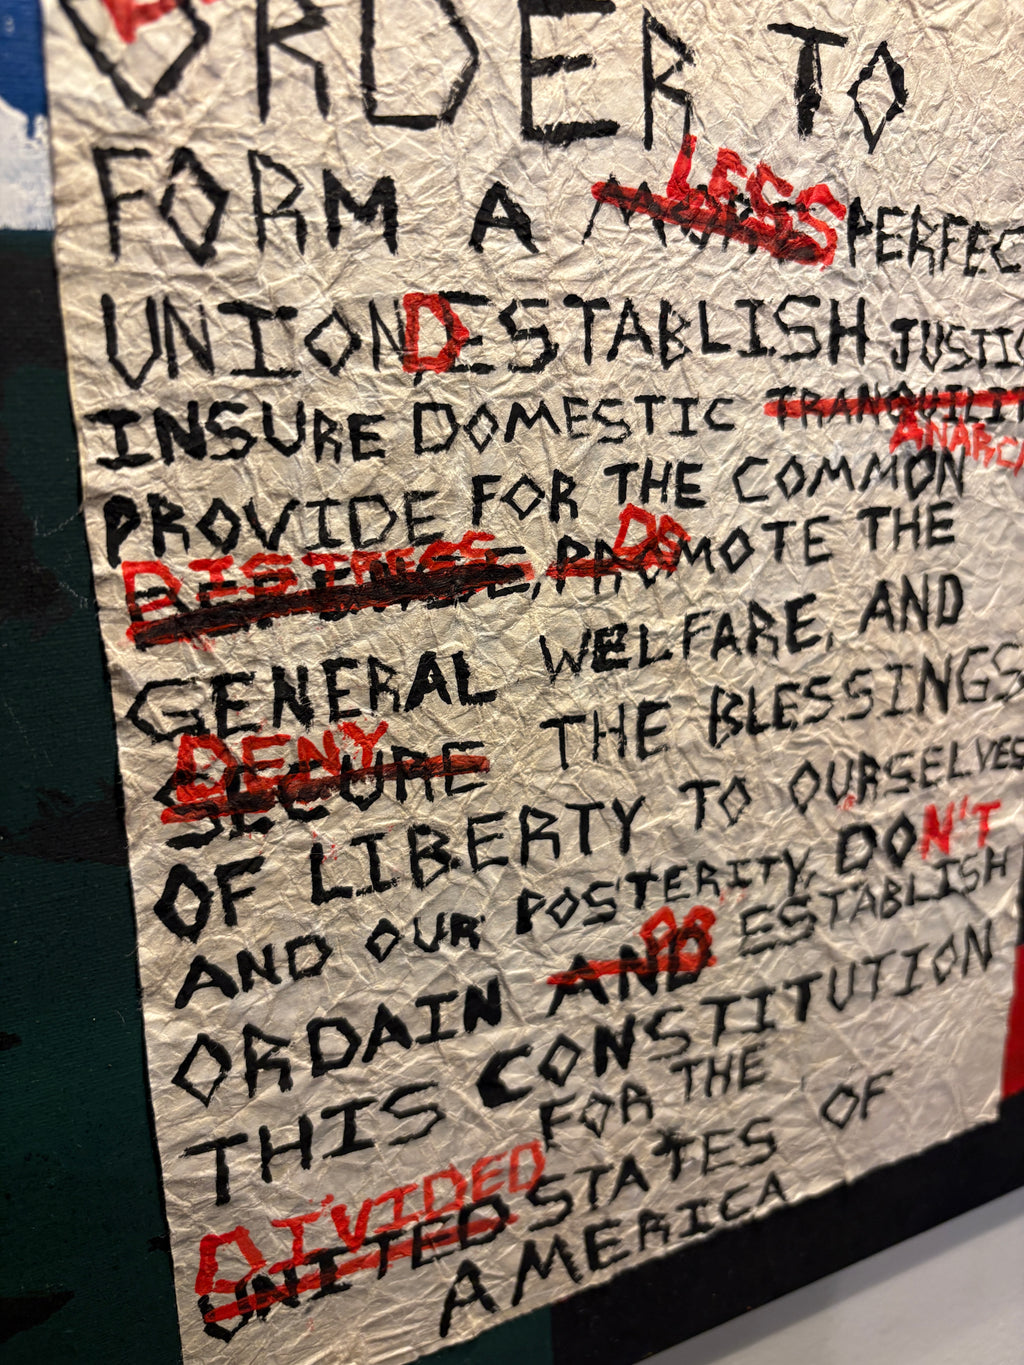 ORDER TO
LESS
FORM A MORE PERFEC
UNION DESTABLISH JUSTIC
INSURE DOMESTIC TRANQUILIT
ANARC
PROVIDE FOR THE COMMON
DISTRESS
DEFENSE, PROMOTE THE
GENERAL WELFARE, AND
DENY
SECURE THE BLESSINGS
OF LIBERTY TO OURSELVES
AND OUR POSTERITY, DON'T
OR
ORDAIN AND ESTABLISH
THIS CONSTITUTION
FOR THE
DIVIDED
UNITED STATES OF
AMERICA